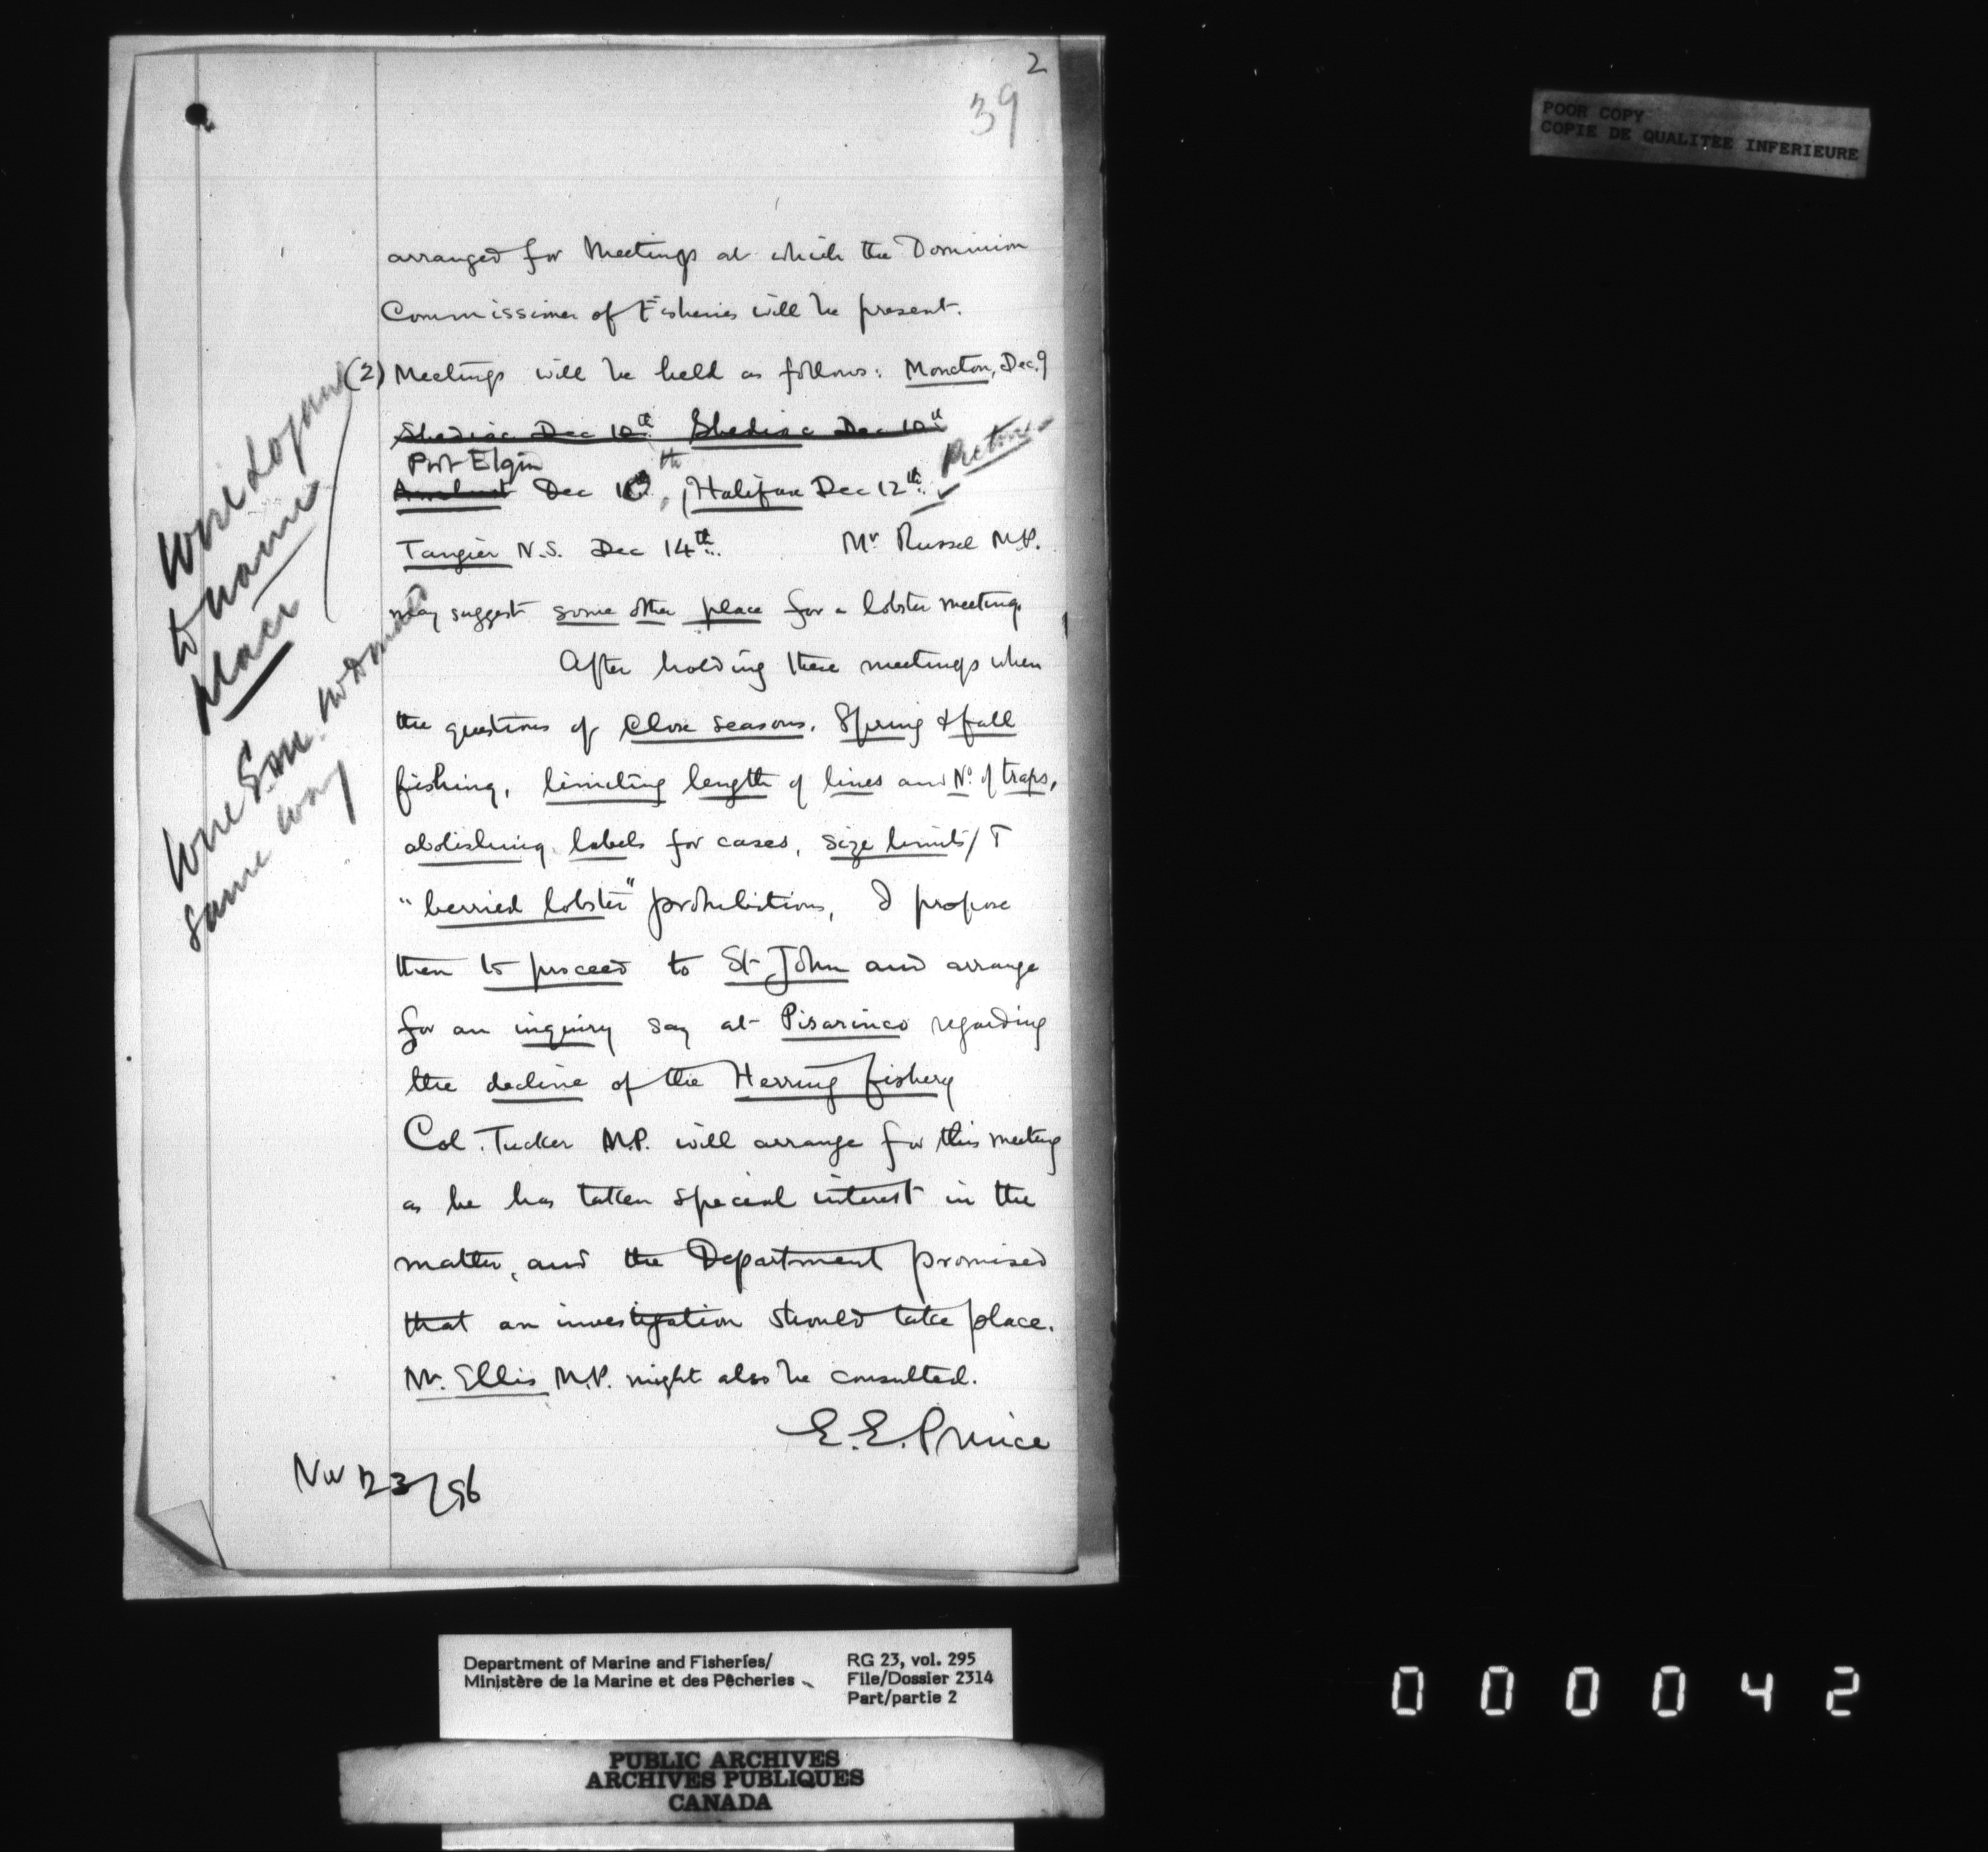 2
39
POOR COPY
COPIE DE QUALITEE INFERIEURE
arranged for Meetings at which the Dominion
Commissioner of Fisheries will be present.
(2) Meetings will be held as follows: Moncton, Dec. 9
Shediac Dec 10th Shediac Dec 10th
Port Elgin
Amherst Dec 10th, Halifax Dec 12th. Pictou
Tangier N.S. Dec 14th. Mr Russel M.P.
may suggest some other place for a lobster meeting.
After holding these meetings when
the questions of Close Seasons, Spring & fall
fishing, limiting length of lines and No. of traps,
abolishing labels for cases, size limits/
"berried lobster" prohibitions, I propose
then to proceed to St John and arrange
for an inquiry say at Pisarinco regarding
the decline of the Herring fishery
Col. Tucker M.P. will arrange for this meeting
as he has taken special interest in the
matter, and the Department promised
that an investigation should take place.
Mr. Ellis M.P. might also be consulted.
E. E. Prince
Nov 23/96
Wire Logan
to name
place
Wire Sen.
same way
Department of Marine and Fisheries/
Ministère de la Marine et des Pêcheries
RG 23, vol. 295
File/Dossier 2314
Part/partie 2
PUBLIC ARCHIVES
ARCHIVES PUBLIQUES
CANADA
000042